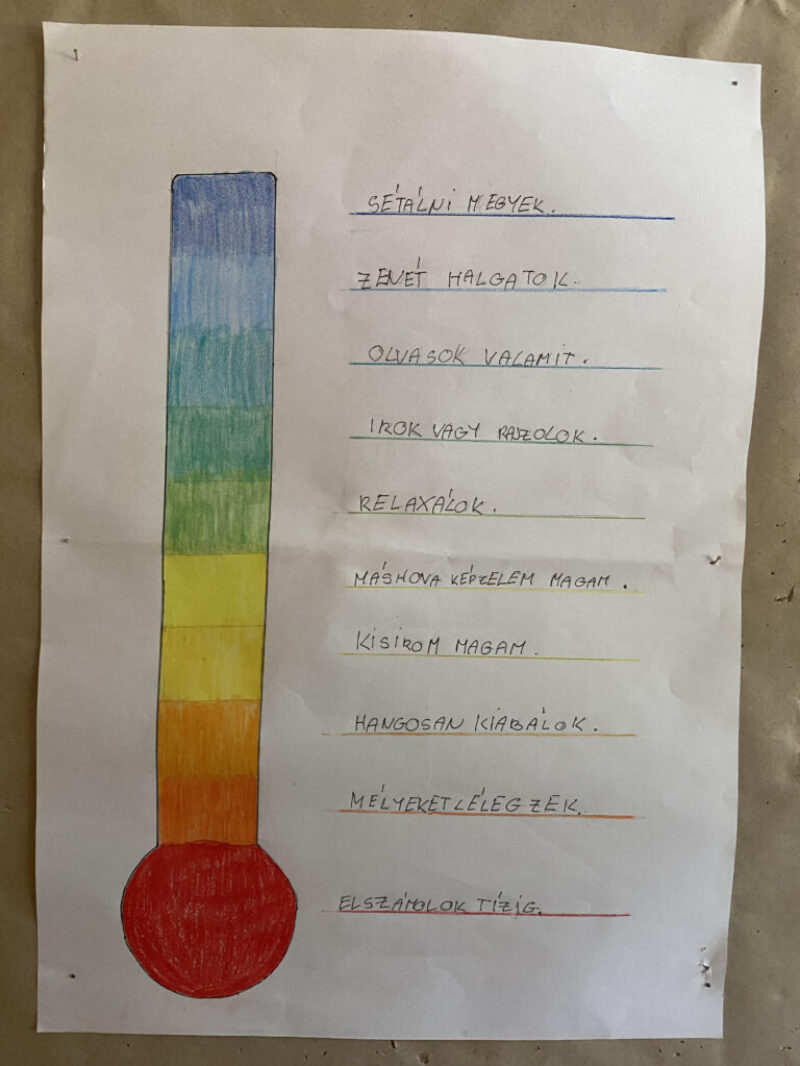 SÉTÁLNI MEGYEK.
ZENÉT HALGATOK.
OLVASOK VALAMIT.
IROK VAGY RAJZOLOK.
RELAXÁLOK.
MÁSHOVA KÉPZELEM MAGAM.
KISIROM MAGAM.
HANGOSAN KIABÁLOK.
MÉLYEKET LÉLEGZEK.
ELSZÁMOLOK TÍZIG.